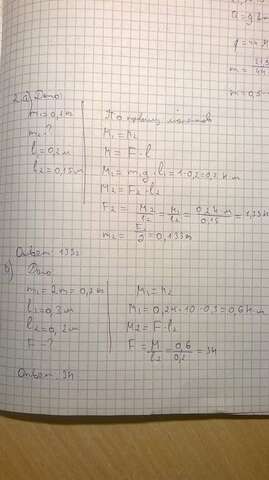 2. а) Дано:
m₁ = 0,1 кг
m₂ ?
l₁ = 0,2 м
l₂ = 0,15 м
По правилу моментов
M₁ = M₂
M = F · l
M₁ = m₁g · l₁ = 1 · 0,2 = 0,2 Н м
M₂ = F₂ · l₂
F₂ = M₂/l₂ = M₁/l₂ = 0,2 Н м/0,15 = 1,33 Н
m₂ = F₂/g = 0,133 кг
Ответ: 133 г
б) Дано
m₁ = 2m = 0,2 кг
l₁ = 0,3 м
l₂ = 0,2 м
F - ?
M₁ = M₂
M₁ = 0,2 · 10 · 0,3 = 0,6 Н м
M₂ = F · l₂
F = M/l₂ = 0,6/0,2 = 3 Н
Ответ: 3 Н